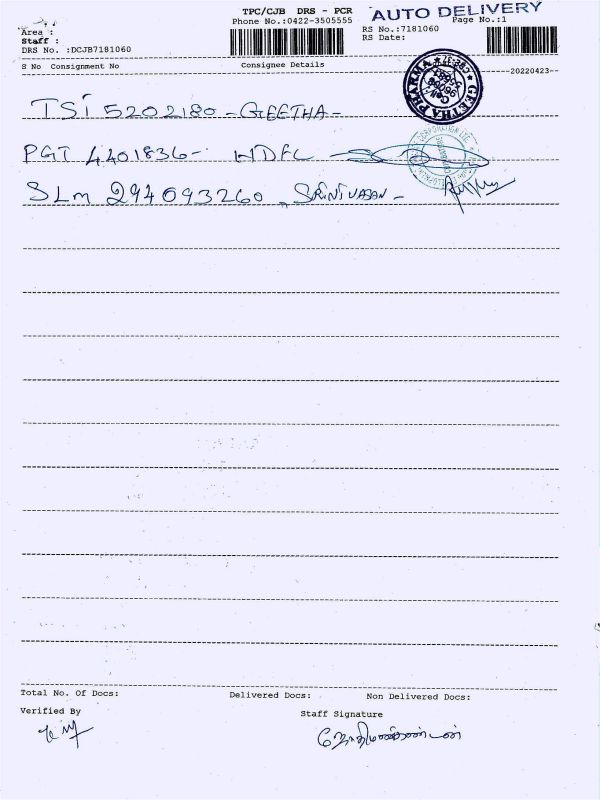 TPC/CJB DRS - PCR
AUTO DELIVERY
Area :
Phone No.:0422-3505555
Page No.:1
Staff :
RS No.:7181060
DRS No. :DCJB7181060
RS Date:
S No Consignment No
Consignee Details
20220423
GEETHA PHARMA
TSI 5202180 - GEETHA -
PGT 4401836 - HDFC
SLM 294093260 - SRINIVASAN -
Total No. Of Docs:
Delivered Docs:
Non Delivered Docs:
Verified By
Staff Signature